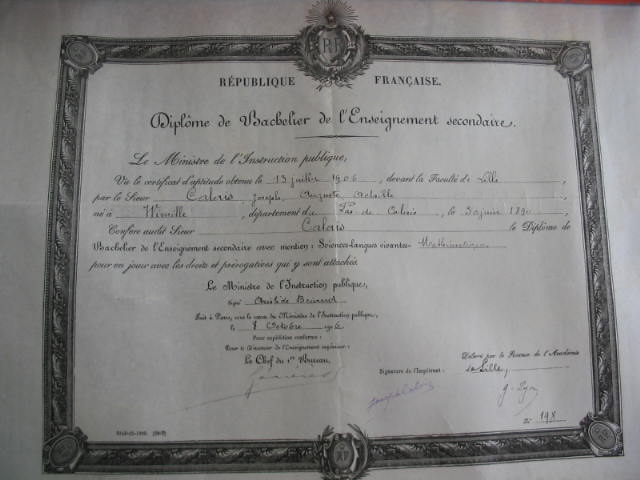 RF
RÉPUBLIQUE FRANÇAISE.
Diplôme de Bachelier de l'Enseignement secondaire.
Le Ministre de l'Instruction publique,
Vu le certificat d'aptitude obtenu le 13 juillet 1906, devant la Faculté de Lille,
par le Sieur Caloin Joseph Auguste Achille
né à Wimille, département du Pas de Calais, le 30 juin 1890
Confère audit Sieur Caloin le Diplôme de
Bachelier de l'Enseignement secondaire avec mention: Sciences-langues vivantes- Mathématiques
pour en jouir avec les droits et prérogatives qui y sont attachés.
Le Ministre de l'Instruction publique,
Signé Aristide Briand
Fait à Paris, sous le sceau du Ministère de l'Instruction publique,
le 8 Octobre 1906
Pour expédition conforme:
Pour le Directeur de l'Enseignement supérieur:
Le Chef du 1er Bureau,
Délivré par le Recteur de l'Académie
de Lille,
Signature de l'Impétrant:
Joseph Caloin
G. Lyon
No 198